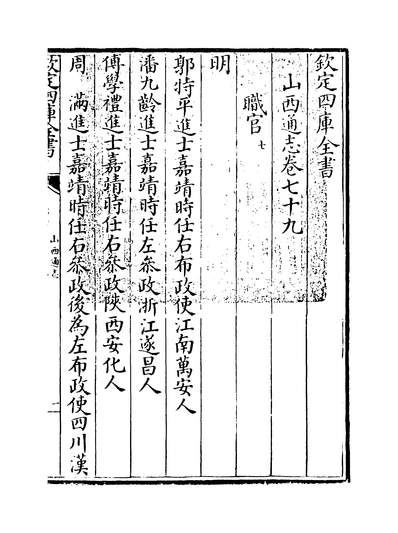 欽定四庫全書
山西通志卷七十九
職官七
明
郭持平進士嘉靖時任右布政使江南萬安人
潘九齡進士嘉靖時任左叅政浙江遂昌人
傅學禮進士嘉靖時任右叅政陜西安化人
周　滿進士嘉靖時任右叅政後為左布政使四川漢
欽定四庫全書
山西通志
一